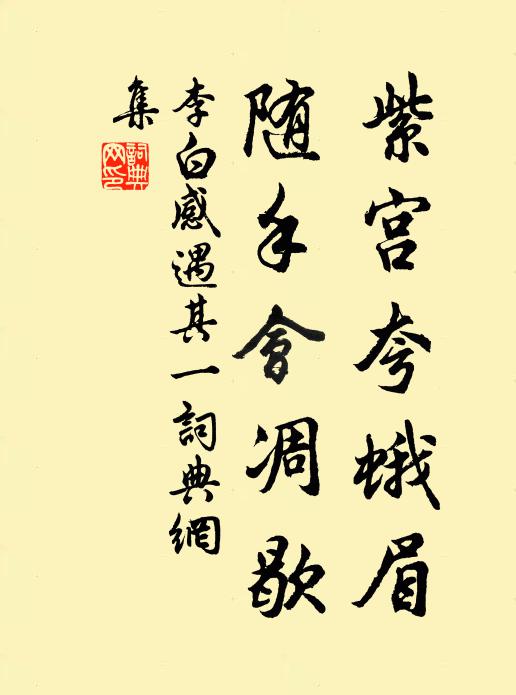 紫宫夸蛾眉
随手會凋歇
李白感遇其一詞典網
集
詞典
网印